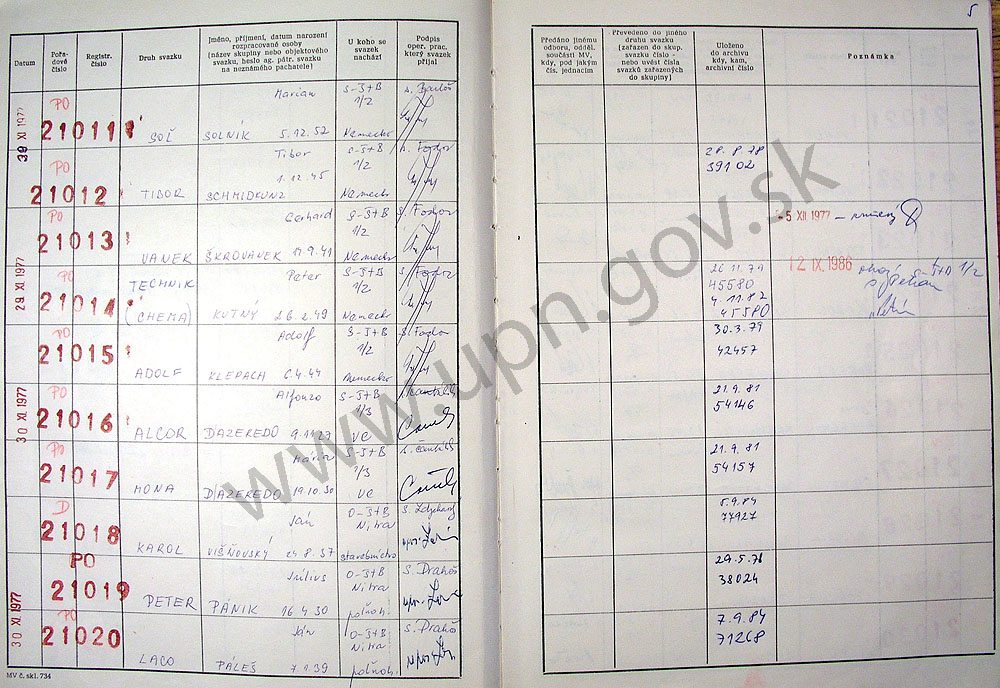 5
Datum
Pořadové číslo
Registr. číslo
Druh svazku
Jméno, příjmení, datum narození
rozpracované osoby
(název skupiny nebo objektového
svazku, heslo ag. pátr. svazku
na neznámého pachatele)
U koho se
svazek
nachází
Podpis
oper. prac.
který svazek
přijal
Předáno jinému
odboru, odděl.
součásti MV,
kdy, pod jakým
čís. jednacím
Převedeno do jiného
druhu svazku
(zařazen do skup.
svazku číslo -
nebo uvést čísla
svazků zařazených
do skupiny)
Uloženo
do archivu
kdy, kam,
archivní číslo
Poznámka
PO Marian S-ŠtB
21011 1/2
SOĽ SOLNÍK 5.12.52 Nemecko
PO Tibor S-ŠtB
21012 1.12.45 1/2 28.8.78
TIBOR SCHMIDKUNZ Nemecko 39102
PO Gerhard S-ŠtB Fodor
21013 1/2 -5 XII 1977
VANEK ŠKROVÁNEK Nemecko
29 XI 1977
PO TECHNIK Peter S-ŠtB Fodor 12 IX. 1986
21014 1/2 45580
(CHEMA) KUTNÝ 26.2.49 Nemecko 4.11.82
45580
PO Adolf S-ŠtB Fodor 30.3.79
21015 1/2 42457
ADOLF KLEPACH 6.4.44 Nemecko
30 XI 1977
PO Alfonzo S-ŠtB 21.9.81
21016 1/3 54146
ALCOR DAZEREDO VC
PO Mária S-ŠtB 21.9.81
21017 1/3 54157
MONA DAZEREDO 19.10.30 VC
D Ján O-ŠtB 5.9.84
21018 Nitra 77927
KAROL VIŠŇOVSKÝ 24.8.37 stavebníctvo
PO Július O-ŠtB S. Drahoš 29.5.78
21019 Nitra 38024
PETER PÁNIK 16.4.30 poľnoh.
30 XI 1977
PO Ján O-ŠtB S. Drahoš 7.9.84
21020 Nitra 71268
LACO PÁLEŠ 7.1.39 poľnoh.
MV č. skl. 734
www.upn.gov.sk